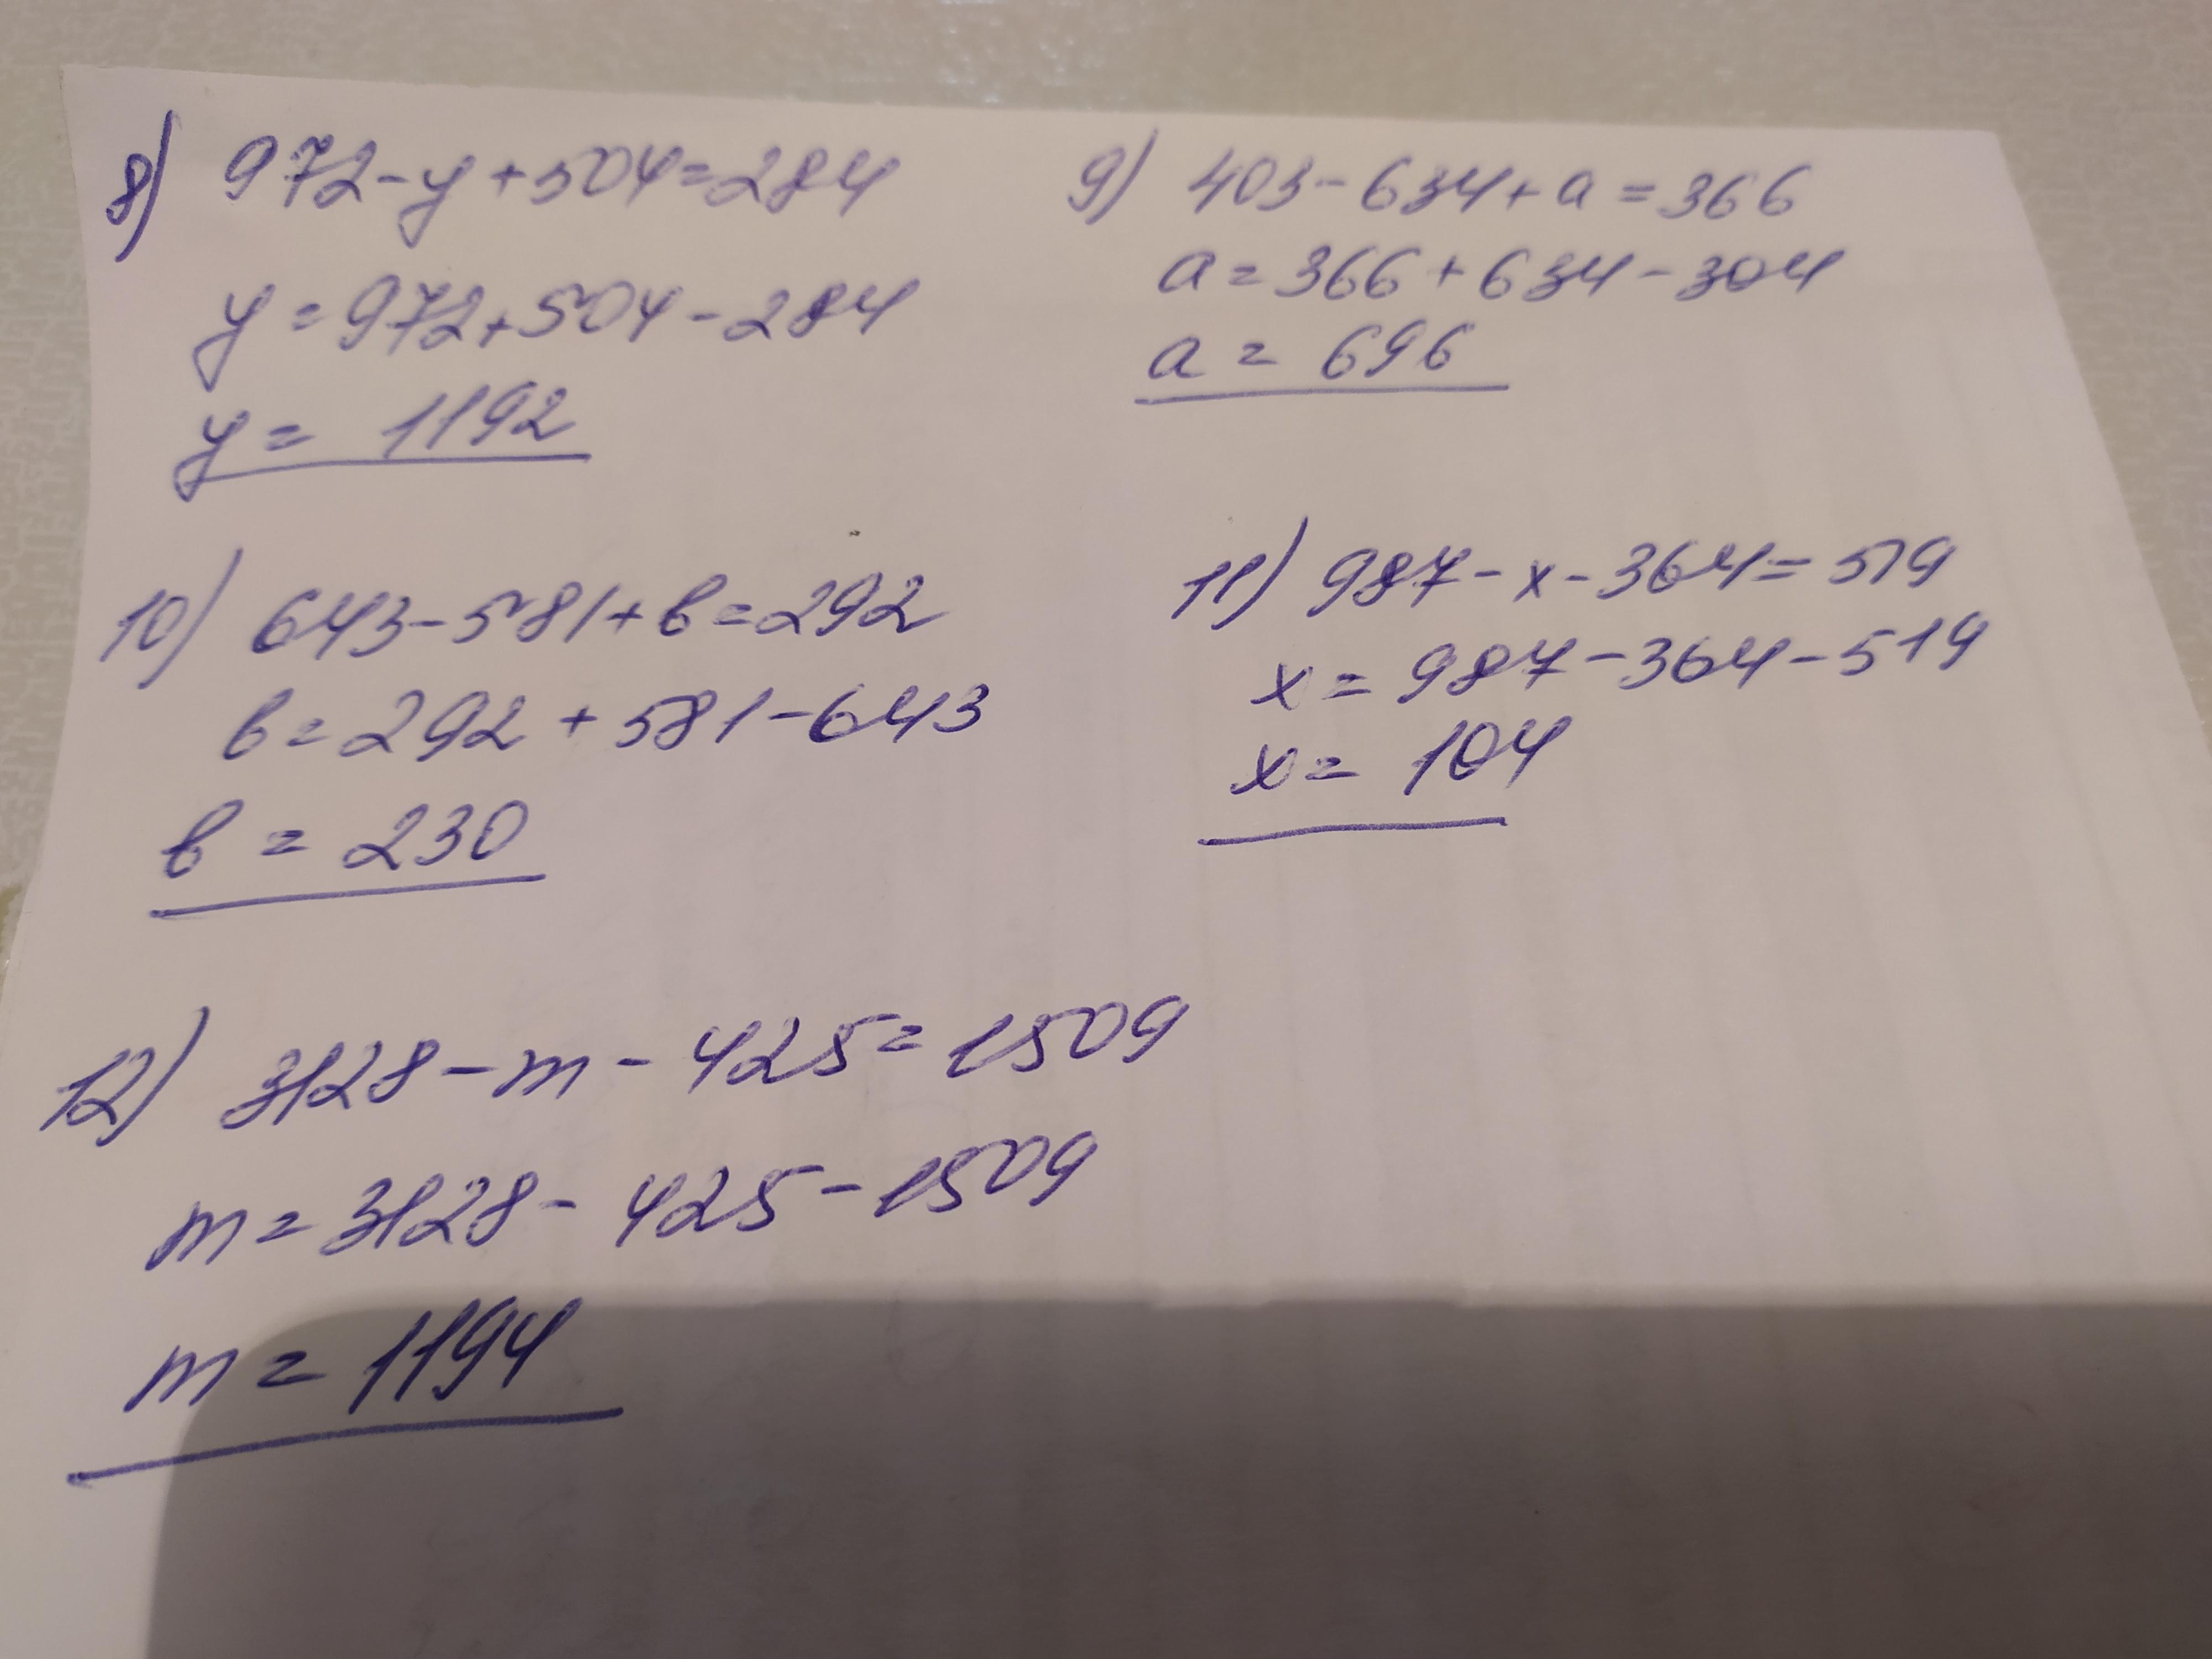 8) 972-y+504=284
y=972+504-284
y= 1192
9) 403-634+a=366
a=366+634-304
a= 696
10) 643-581+в=292
в=292+581-643
в= 230
11) 987-x-364=519
x=987-364-519
x= 104
12) 3128-m-425=1509
m=3128-425-1509
m= 1194